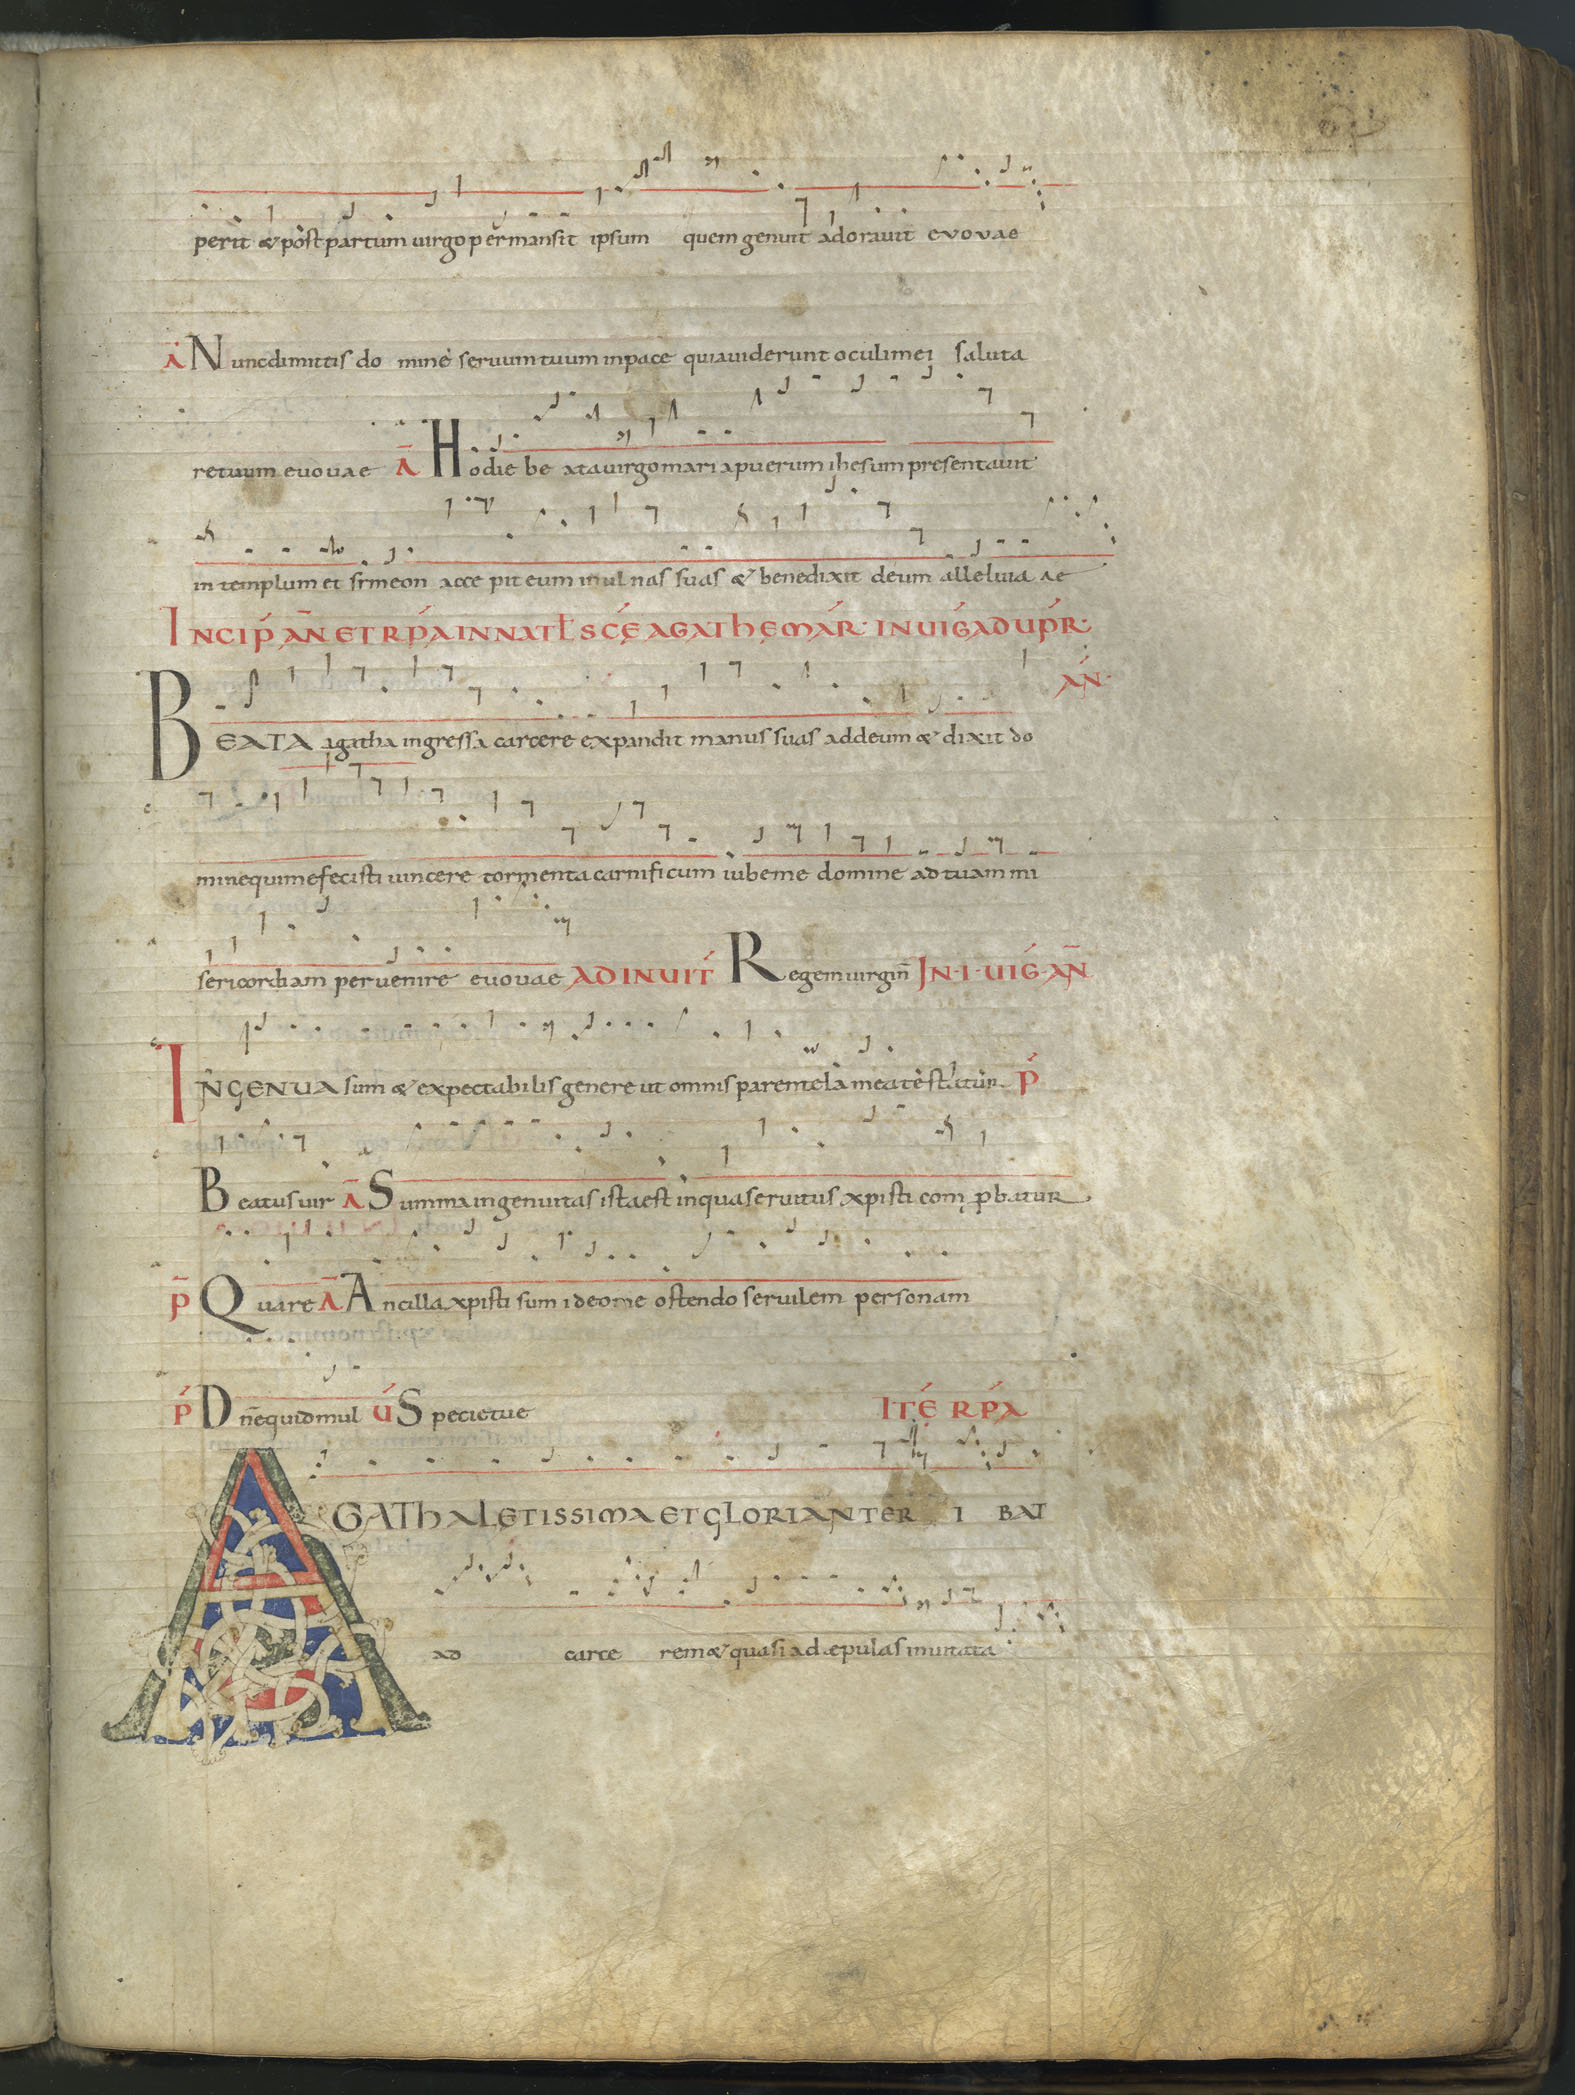 perit & post partum uirgo permansit ipsum quem genuit adorauit evovae
A Nunc dimittis do mine seruum tuum in pace quia uiderunt oculi mei saluta
re tuum euouae Ā Hodie be ata uirgo maria puerum ihesum presentauit
in templum et simeon acce pit eum in ul nas suas & benedixit deum alleluia ae
INCIP AÑ ET RPA IN NATL SCĘ AGATHĘ MAR· IN UIG AD UPR·
AÑ·
BEATA agatha ingressa carcere expandit manus suas ad deum & dixit do
mine qui me fecisti uincere tormenta carnificum iube me domine ad tuam mi
sericordiam peruenire euouae AD INUIT Regem uirgiñ IN·I·UIG·AÑ
INGENUA sum & expectabilis genere ut omnis parentela mea testatur P
Beatus uir Ā Summa ingenuitas ista est in qua seruitus xpisti com pbatur
P Quare Ā Ancilla xpisti sum ideo me ostendo seruilem personam
P Dñe quid mul U Specie tue ITĘ RPA
AGATHA LETISSIMA ET GLORIANTER I BAT
ad carce rem & quasi ad æpulas inuitata